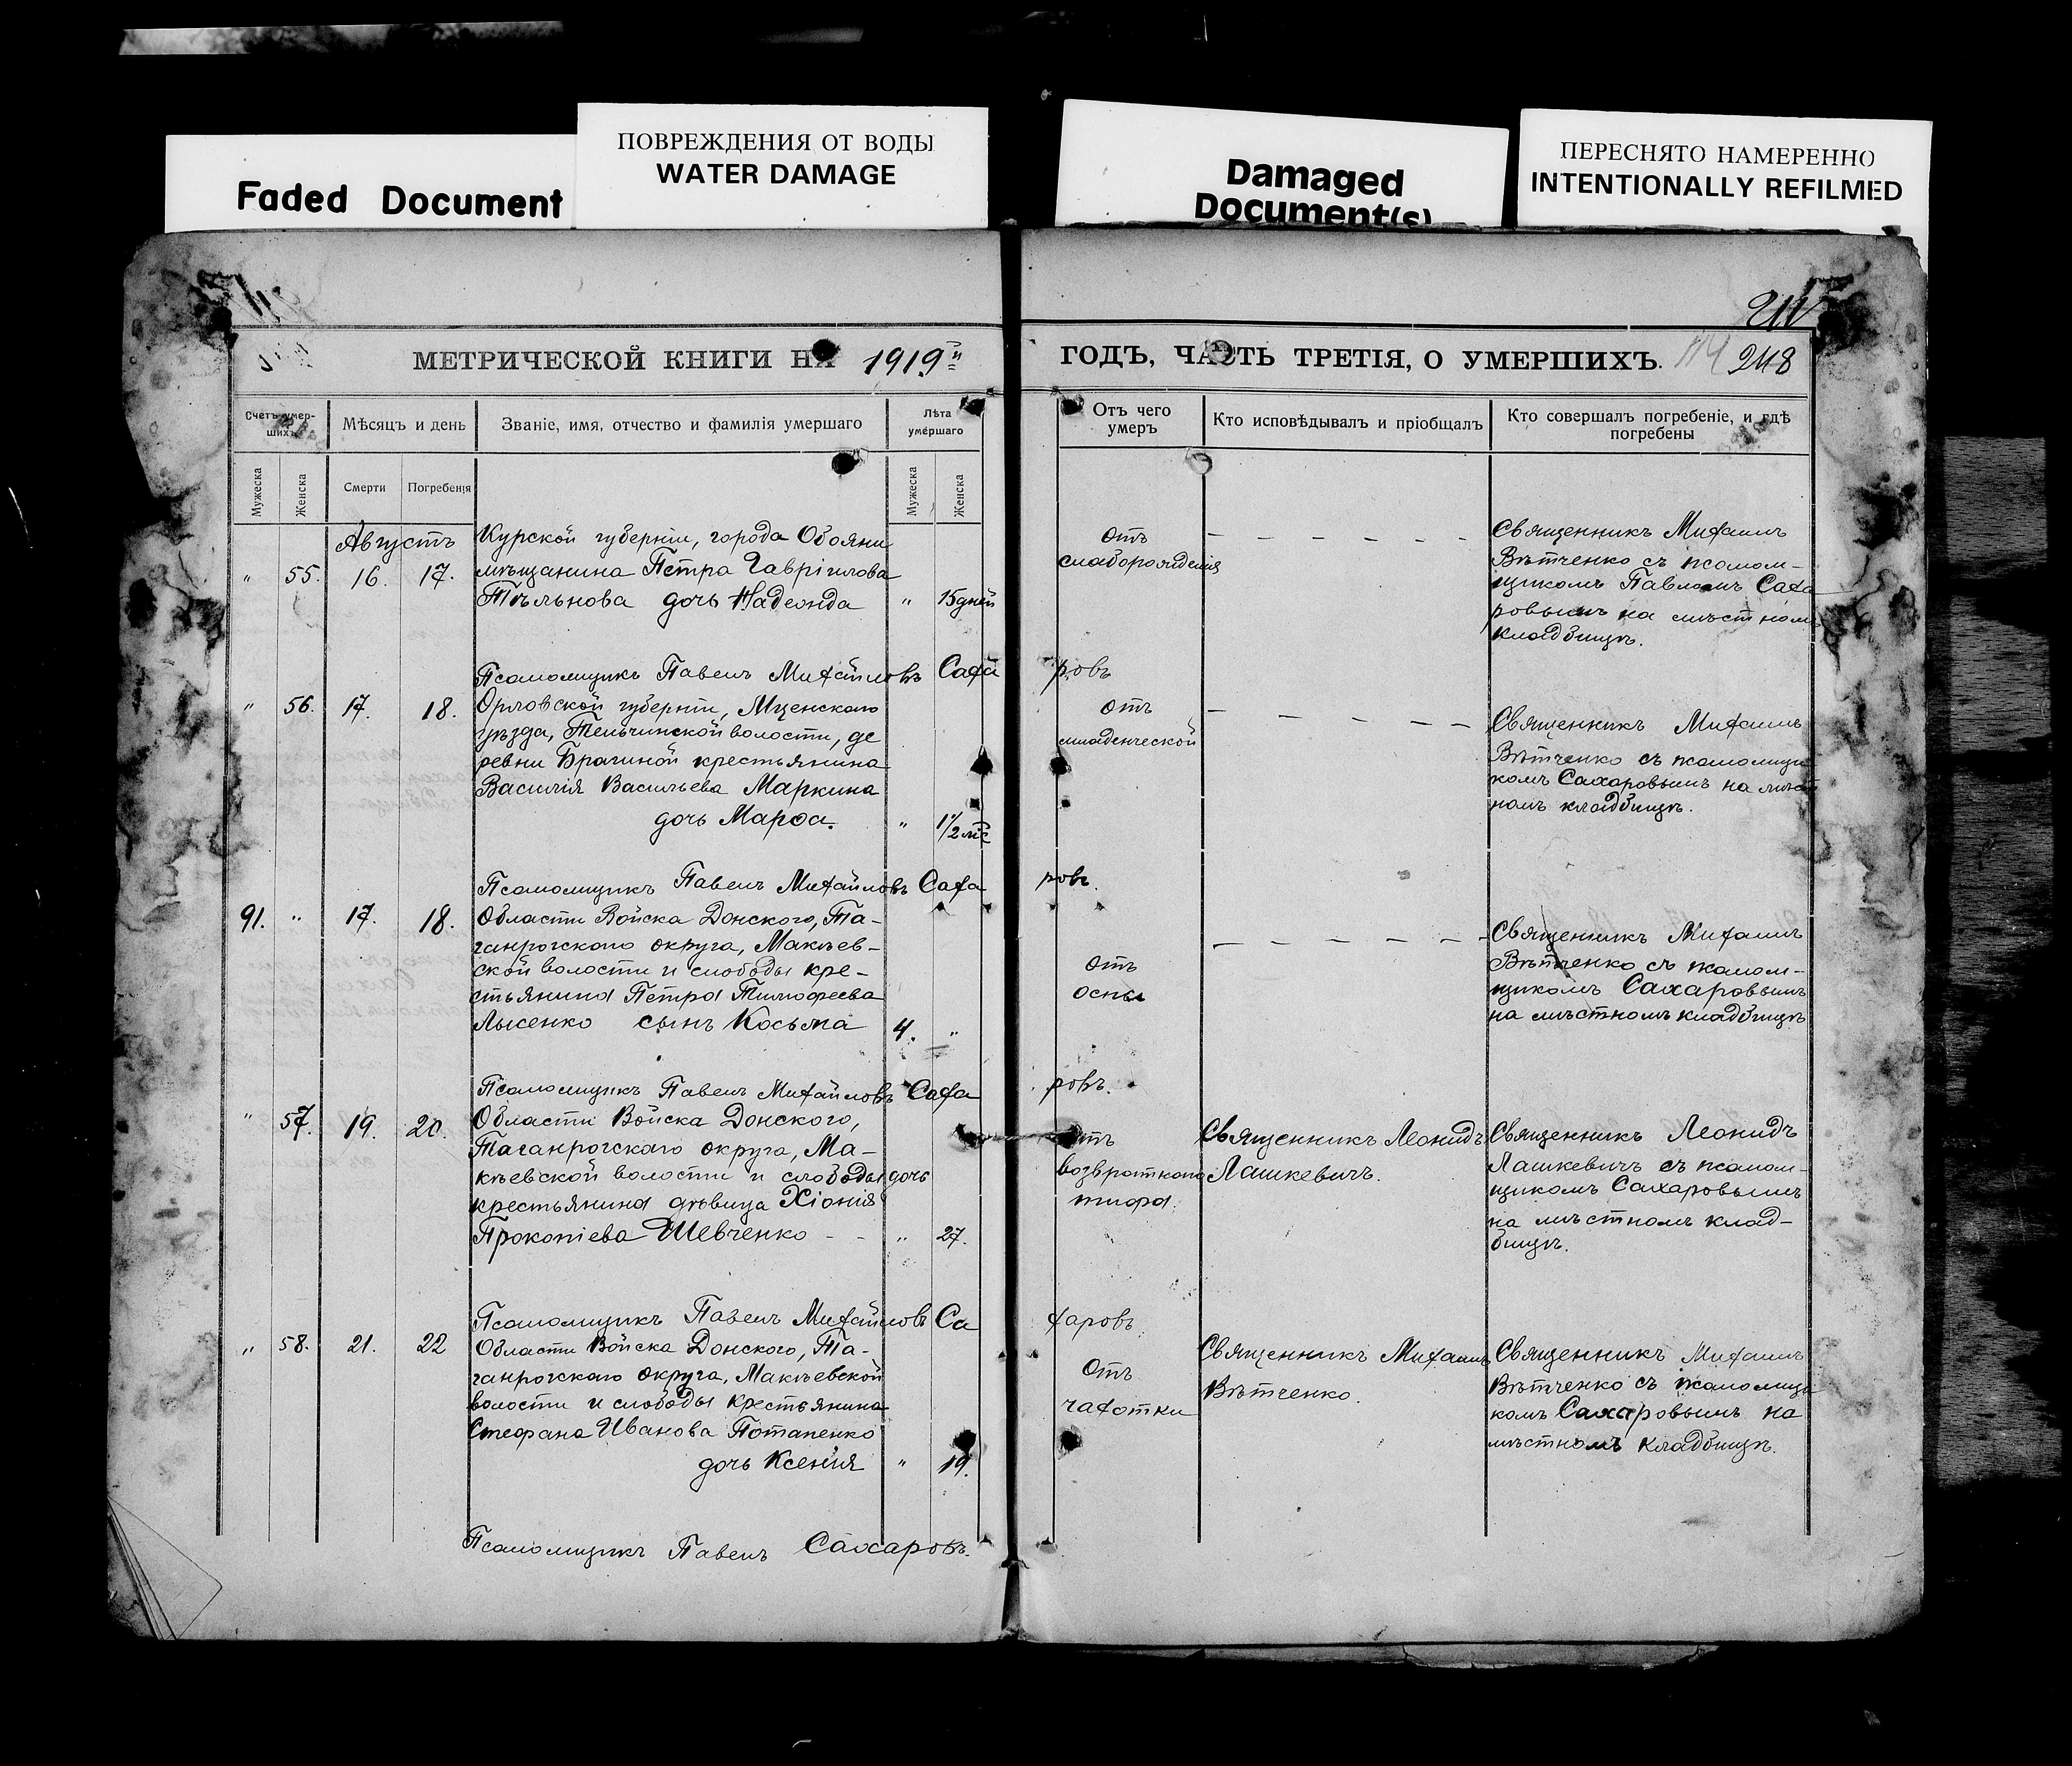 ПОВРЕЖДЕНИЯ ОТ ВОДЫ
WATER DAMAGE
Faded Document
Damaged
Document(s)
ПЕРЕСНЯТО НАМЕРЕННО
INTENTIONALLY REFILMED
МЕТРИЧЕСКОЙ КНИГИ НА 1919й
ГОДЪ, ЧАСТЬ ТРЕТІЯ, О УМЕРШИХЪ. 114 248
Счетъ умер-
шихъ
Мѣсяцъ и день
Званіе, имя, отчество и фамилія умершаго
Лѣта
умершаго
Отъ чего
умеръ
Кто исповѣдывалъ и пріобщалъ
Кто совершалъ погребеніе, и гдѣ
погребены
Мужеска
Женска
Смерти
Погребенія
Мужеска
Женска
Августъ
" 55. 16. 17.
Курской губерніи, города Обояни
мѣщанина Петра Гавріилова
Тѣльнова дочь Надежда " 15 дней
отъ
слаборожденія
Священникъ Михаилъ
Вѣтченко съ псалом-
щикомъ Павломъ Саха
ровымъ на мѣстномъ
кладбищѣ.
Псаломщикъ Павелъ Михайловъ Саха
ровъ
" 56. 17. 18.
Орловской губерніи, Мценскаго
уѣзда, Тельчинской волости, де
ревни Брагиной крестьянина
Василія Васильева Маркина
дочь Марѳа. " 1 1/2 мс
отъ
младенческой
Священникъ Михаилъ
Вѣтченко съ псаломщи
комъ Сахаровымъ на мѣст
номъ кладбищѣ.
Псаломщикъ Павелъ Михайловъ Саха
ровъ.
91. " 17. 18.
Области Войска Донского, Та-
ганрогскаго округа, Макѣев-
ской волости и слободы кре-
стьянина Петра Тимофеева
Лысенко сынъ Косьма 4. "
отъ
оспы
Священникъ Михаилъ
Вѣтченко съ псалом-
щикомъ Сахаровымъ
на мѣстномъ кладбищѣ
Псаломщикъ Павелъ Михайловъ Саха
ровъ.
" 57. 19. 20.
Области Войска Донского,
Таганрогскаго округа, Ма-
кѣевской волости и слободы дочь
крестьянина дѣвица Хіонія
Прокопіева Шевченко - - " 27.
отъ
возвратнаго
тифа.
Священникъ Леонидъ
Лашкевичъ.
Священникъ Леонидъ
Лашкевичъ съ псалом-
щикомъ Сахаровымъ
на мѣстномъ клад-
бищѣ.
Псаломщикъ Павелъ Михайловъ Са
харовъ.
" 58. 21. 22
Области Войска Донского, Та-
ганрогскаго округа, Макѣевской
волости и слободы крестьянина
Стефана Иванова Потапенко
дочь Ксенія " 19.
отъ
чахотки
Священникъ Михаилъ
Вѣтченко.
Священникъ Михаилъ
Вѣтченко съ псаломщи
комъ Сахаровымъ на
мѣстномъ кладбищѣ.
Псаломщикъ Павелъ Сахаровъ.